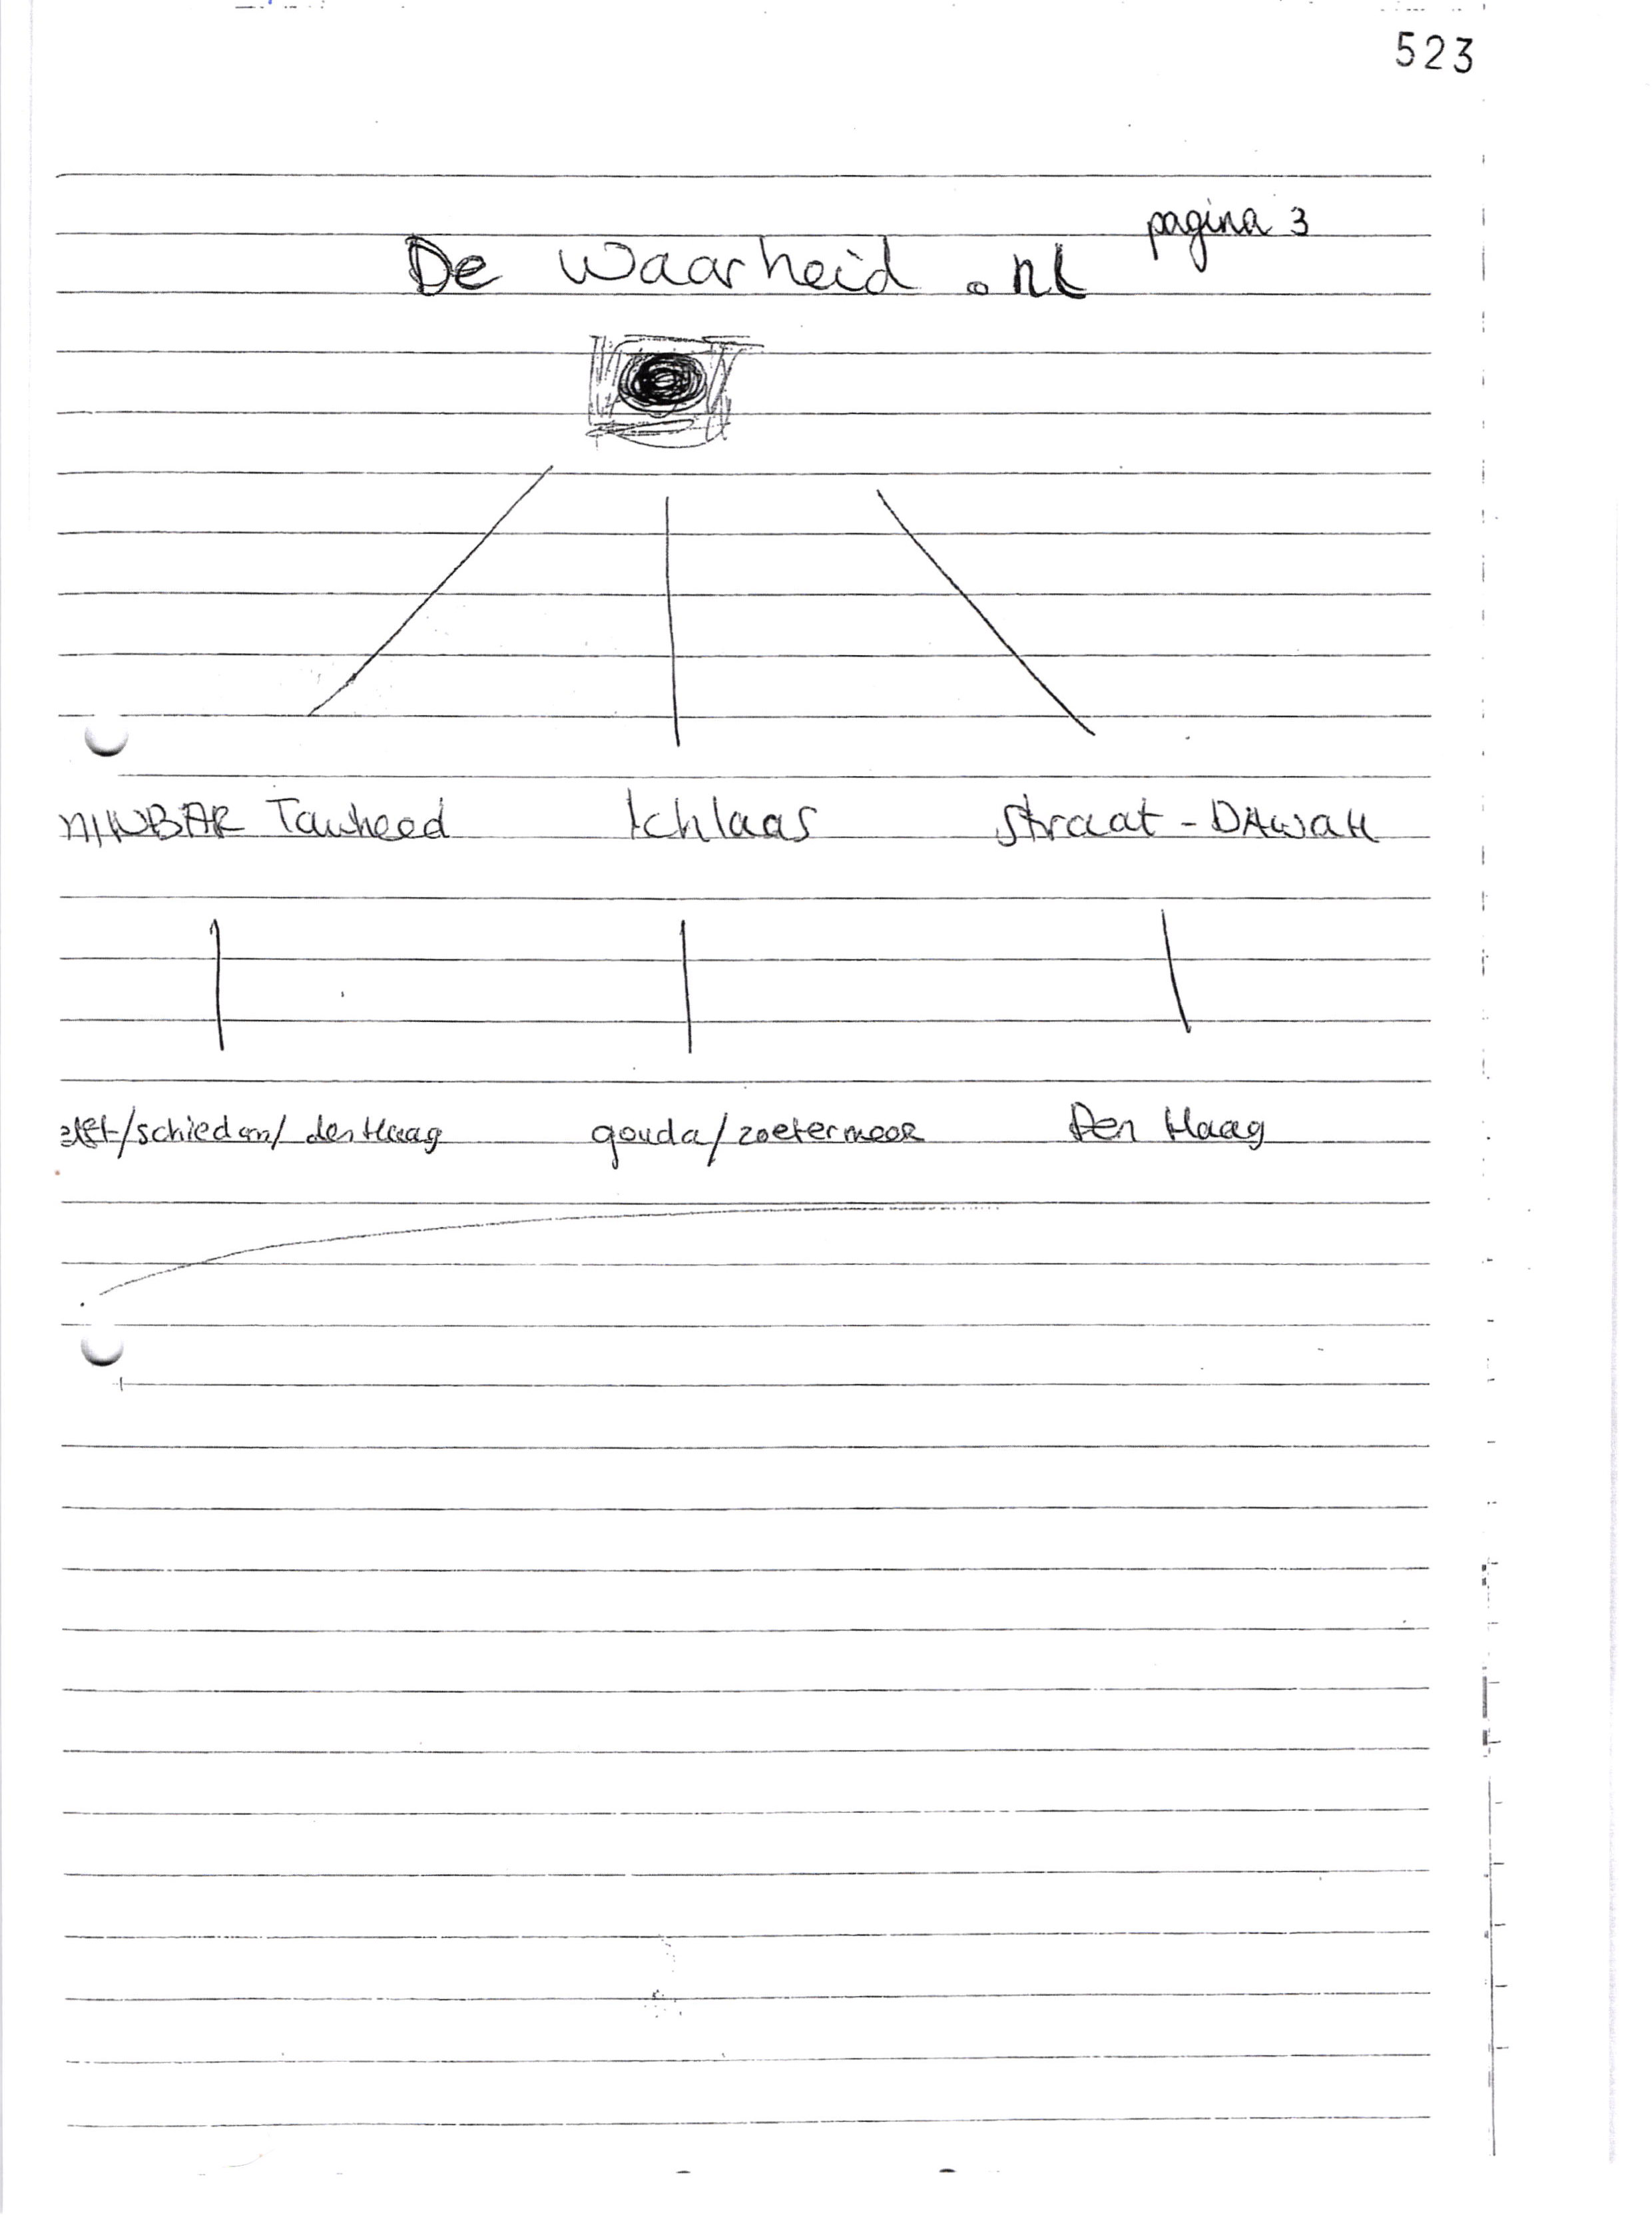 523
pagina 3
De waarheid .nl
MINBAR Tawheed Ichlaas Straat - DAWAH
/schiedam/ den Haag gouda/zoetermeer Den Haag